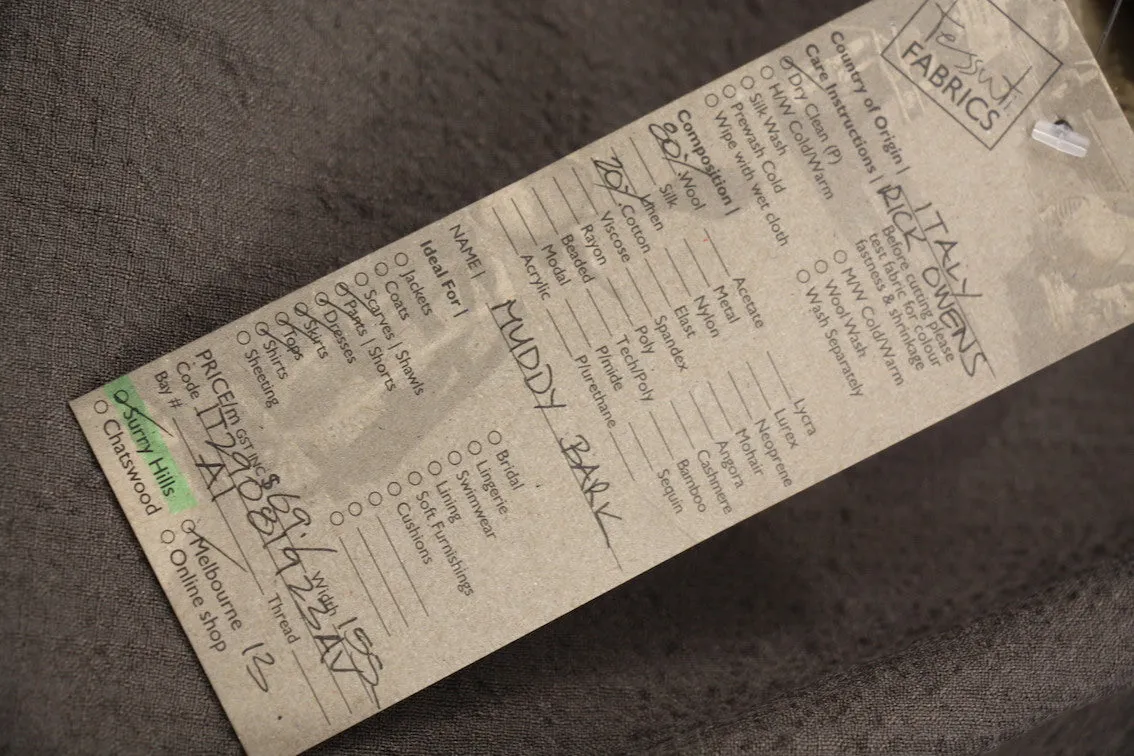 tessuti
FABRICS
Country of Origin | ITALY
Care Instructions | RICK OWENS
Dry Clean (P)
H/W Cold/Warm
Silk Wash
Prewash Cold
Wipe with wet cloth
Before cutting please
test fabric for colour
fastness & shrinkage
M/W Cold/Warm
Wool Wash
Wash Separately
Composition |
80% Wool
Silk
Linen
20% Cotton
Viscose
Rayon
Beaded
Modal
Acrylic
Acetate
Metal
Nylon
Elast
Spandex
Poly
Tech/Poly
P/mide
P/urethane
Lycra
Lurex
Neoprene
Mohair
Angora
Cashmere
Bamboo
Sequin
NAME | MUDDY BARK
Ideal For |
Jackets
Coats
Scarves | Shawls
Pants | Shorts
Dresses
Skirts
Tops
Shirts
Sheeting
Bridal
Lingerie
Swimwear
Lining
Soft Furnishings
Cushions
PRICE/m GST INC $69.- Width 155
Code
Bay # A1 Thread
Surry Hills
Chatswood
Melbourne 13
Online shop